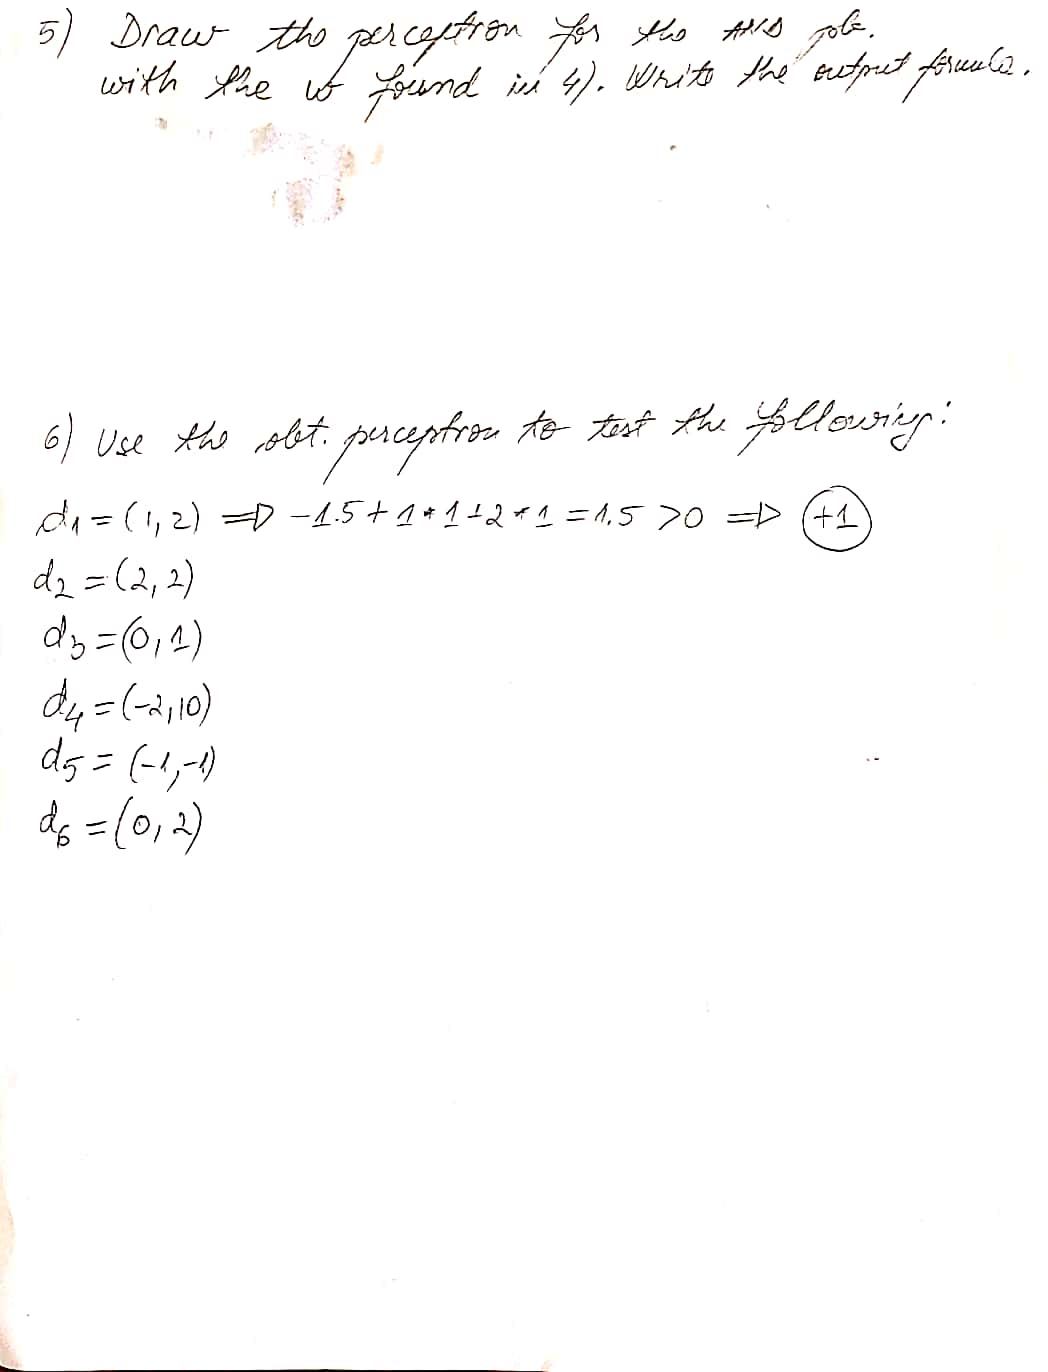 5) Draw the perceptron for the AND pole.
with the w found in 4). Write the output formula.
6) Use the obt. perceptron to test the following:
d1 = (1, 2) => -1.5 + 1 * 1 + 2 * 1 = 1.5 > 0 => +1
d2 = (2, 2)
d3 = (0, 1)
d4 = (-2, 10)
d5 = (-1, -1)
d6 = (0, 2)